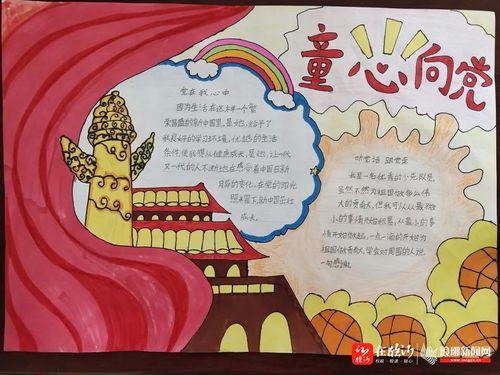 童心向党
党在我心中
因为生活在这样一个繁
荣昌盛的新中国里,是她,给予了
我良好的学习环境,优越的生活
条件,使我得以健康成长,是她,让一代
又一代的人不断地在感受着中国日新
月异的变化。在党的阳光
照耀下,新中国茁壮
成长。
听党话 跟党走
我是一名优秀的少先队员,
虽然不能为祖国做多么伟
大的贡献,但我可以从最
小的事情开始积累,从最小的事
情开始做起,一点一滴的开始为
祖国做贡献,学会对周围的人说
一句感谢。
在临沂
权威 快速 贴心
琅琊新闻网